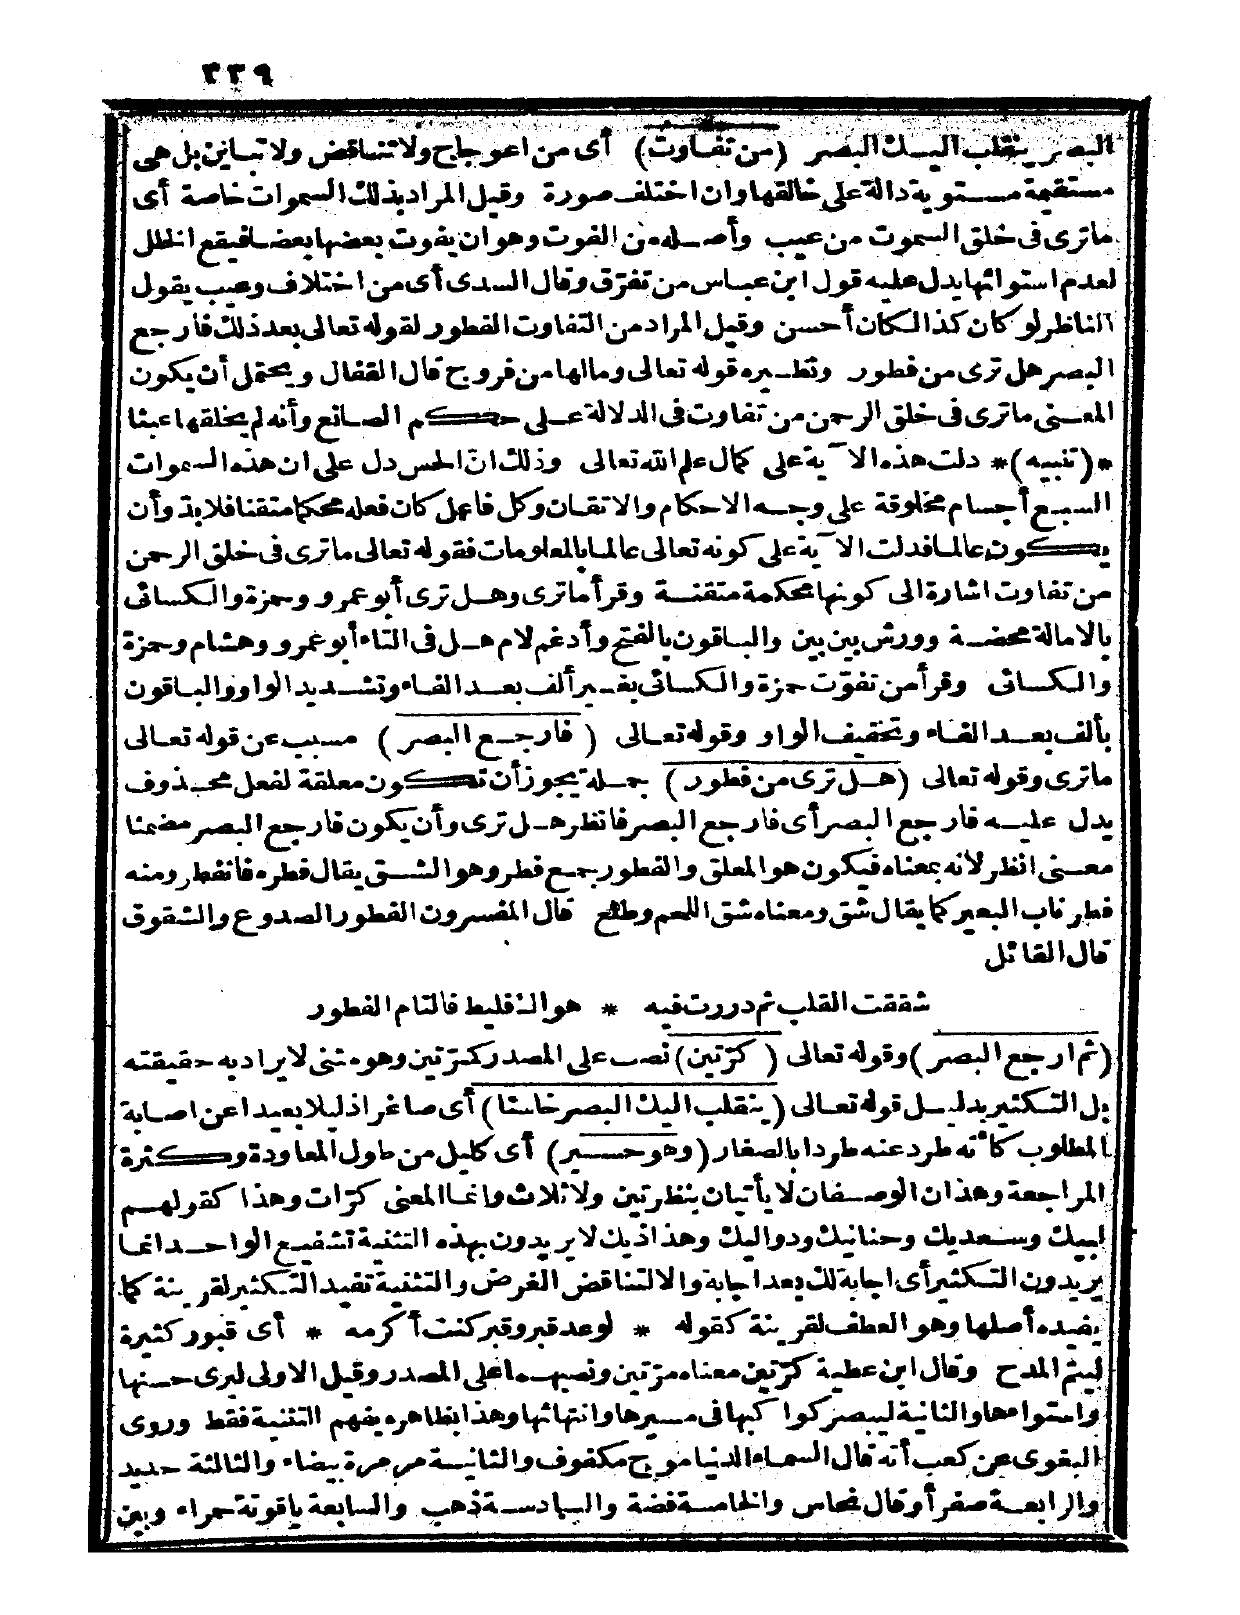 ٣٣٩
البصر ينقلب اليك البصر (من تفاوت) أى من اعوجاج ولا تناقض ولا تباين بل هى
مستقيمة مستوية دالة على خالقها وان اختلف صورة وقيل المراد بذلك السموات خاصة أى
ماترى فى خلق السموت من عيب وأصله من الفوت وهو ان يفوت بعضها بعضا فيقع الخلل
لعدم استوائها يدل عليه قول ابن عباس من تفرّق وقال السدى أى من اختلاف وعيب يقول
الناظر لو كان كذا لكان أحسن وقيل المراد من التفاوت الفطور لقوله تعالى بعد ذلك فارجع
البصر هل ترى من فطور ونظيره قوله تعالى ومالها من فروج قال القفال ويحتمل أن يكون
المعنى ماترى فى خلق الرحمن من تفاوت فى الدلالة على حكم الصانع وأنه لم يخلقها عبثا
*(تنبيه)* دلت هذه الآية على كمال علم الله تعالى وذلك انّ الحس دل على ان هذه السموات
السبع أجسام مخلوقة على وجه الاحكام والاتقان وكل فاعل كان فعله محكما متقنا فلابدّ وأن
يكون عالما فدلت الآية على كونه تعالى عالما بالمعلومات فقوله تعالى ماترى فى خلق الرحمن
من تفاوت اشارة الى كونها محكمة متقنة وقرأ ماترى وهل ترى أبو عمرو وحمزة والكسائى
بالامالة محضة وورش بين بين والباقون بالفتح وأدغم لام هل فى التاء أبو عمرو وهشام وحمزة
والكسائى وقرأ من تفوّت حمزة والكسائى بغير ألف بعد الفاء وتشديد الواو والباقون
بألف بعد الفاء وتخفيف الواو وقوله تعالى (فارجع البصر) مسبب عن قوله تعالى
ماترى وقوله تعالى (هل ترى من فطور) جملة يجوز أن تكون معلقة لفعل محذوف
يدل عليه فارجع البصر أى فارجع البصر فانظر هل ترى وأن يكون فارجع البصر مضمنا
معنى انظر لانه بمعناه فيكون هو المعلق والفطور جمع فطر وهو الشق يقال فطره فانفطر ومنه
فطر ناب البعير كما يقال شق ومعناه شق اللحم وطلع قال المفسرون الفطور الصدوع والشقوق
قال القائل
شققت القلب ثم دررت فيه * هوالـ فليط فالتام الفطور
(ثم ارجع البصر) وقوله تعالى (كرّتين) نصب على المصدر كمرّتين وهو مثنى لا يراد به حقيقته
بل التكثير بدليل قوله تعالى (ينقلب اليك البصر خاسئا) أى صاغرا ذليلا بعيدا عن اصابة
المطلوب كأنه طرد عنه طردا بالصغار (وهو حسير) أى كليل من طول المعاودة وكثرة
المراجعة وهذان الوصفان لا يأتيان بنظرتين ولا ثلاث وانما المعنى كرّات وهذا كقولهم
لبيك وسعديك وحنانيك ودواليك وهذاذيك لا يريدون بهذه التثنية تشفيع الواحد انما
يريدون التكثير أى اجابة لك بعد اجابة والا لتناقض الغرض والتثنية تفيد التكثير لقرينة كما
يفيده أصلها وهو العطف لقرينة كقوله * لو عد قبر وقبر كنت أكرمه * أى قبور كثيرة
ليتم المدح وقال ابن عطية كرّتين معناه مرّتين ونصبهما على المصدر وقيل الاولى ليرى حسنها
واستواءها والثانية ليبصر كواكبها فى مسيرها وانتهائها وهذا بظاهره يفهم التثنية فقط وروى
البغوى عن كعب أنه قال السماء الدنيا موج مكفوف والثانية مرمرة بيضاء والثالثة حديد
والرابعة صفر أو قال نحاس والخامسة فضة والسادسة ذهب والسابعة ياقوتة حمراء وبين